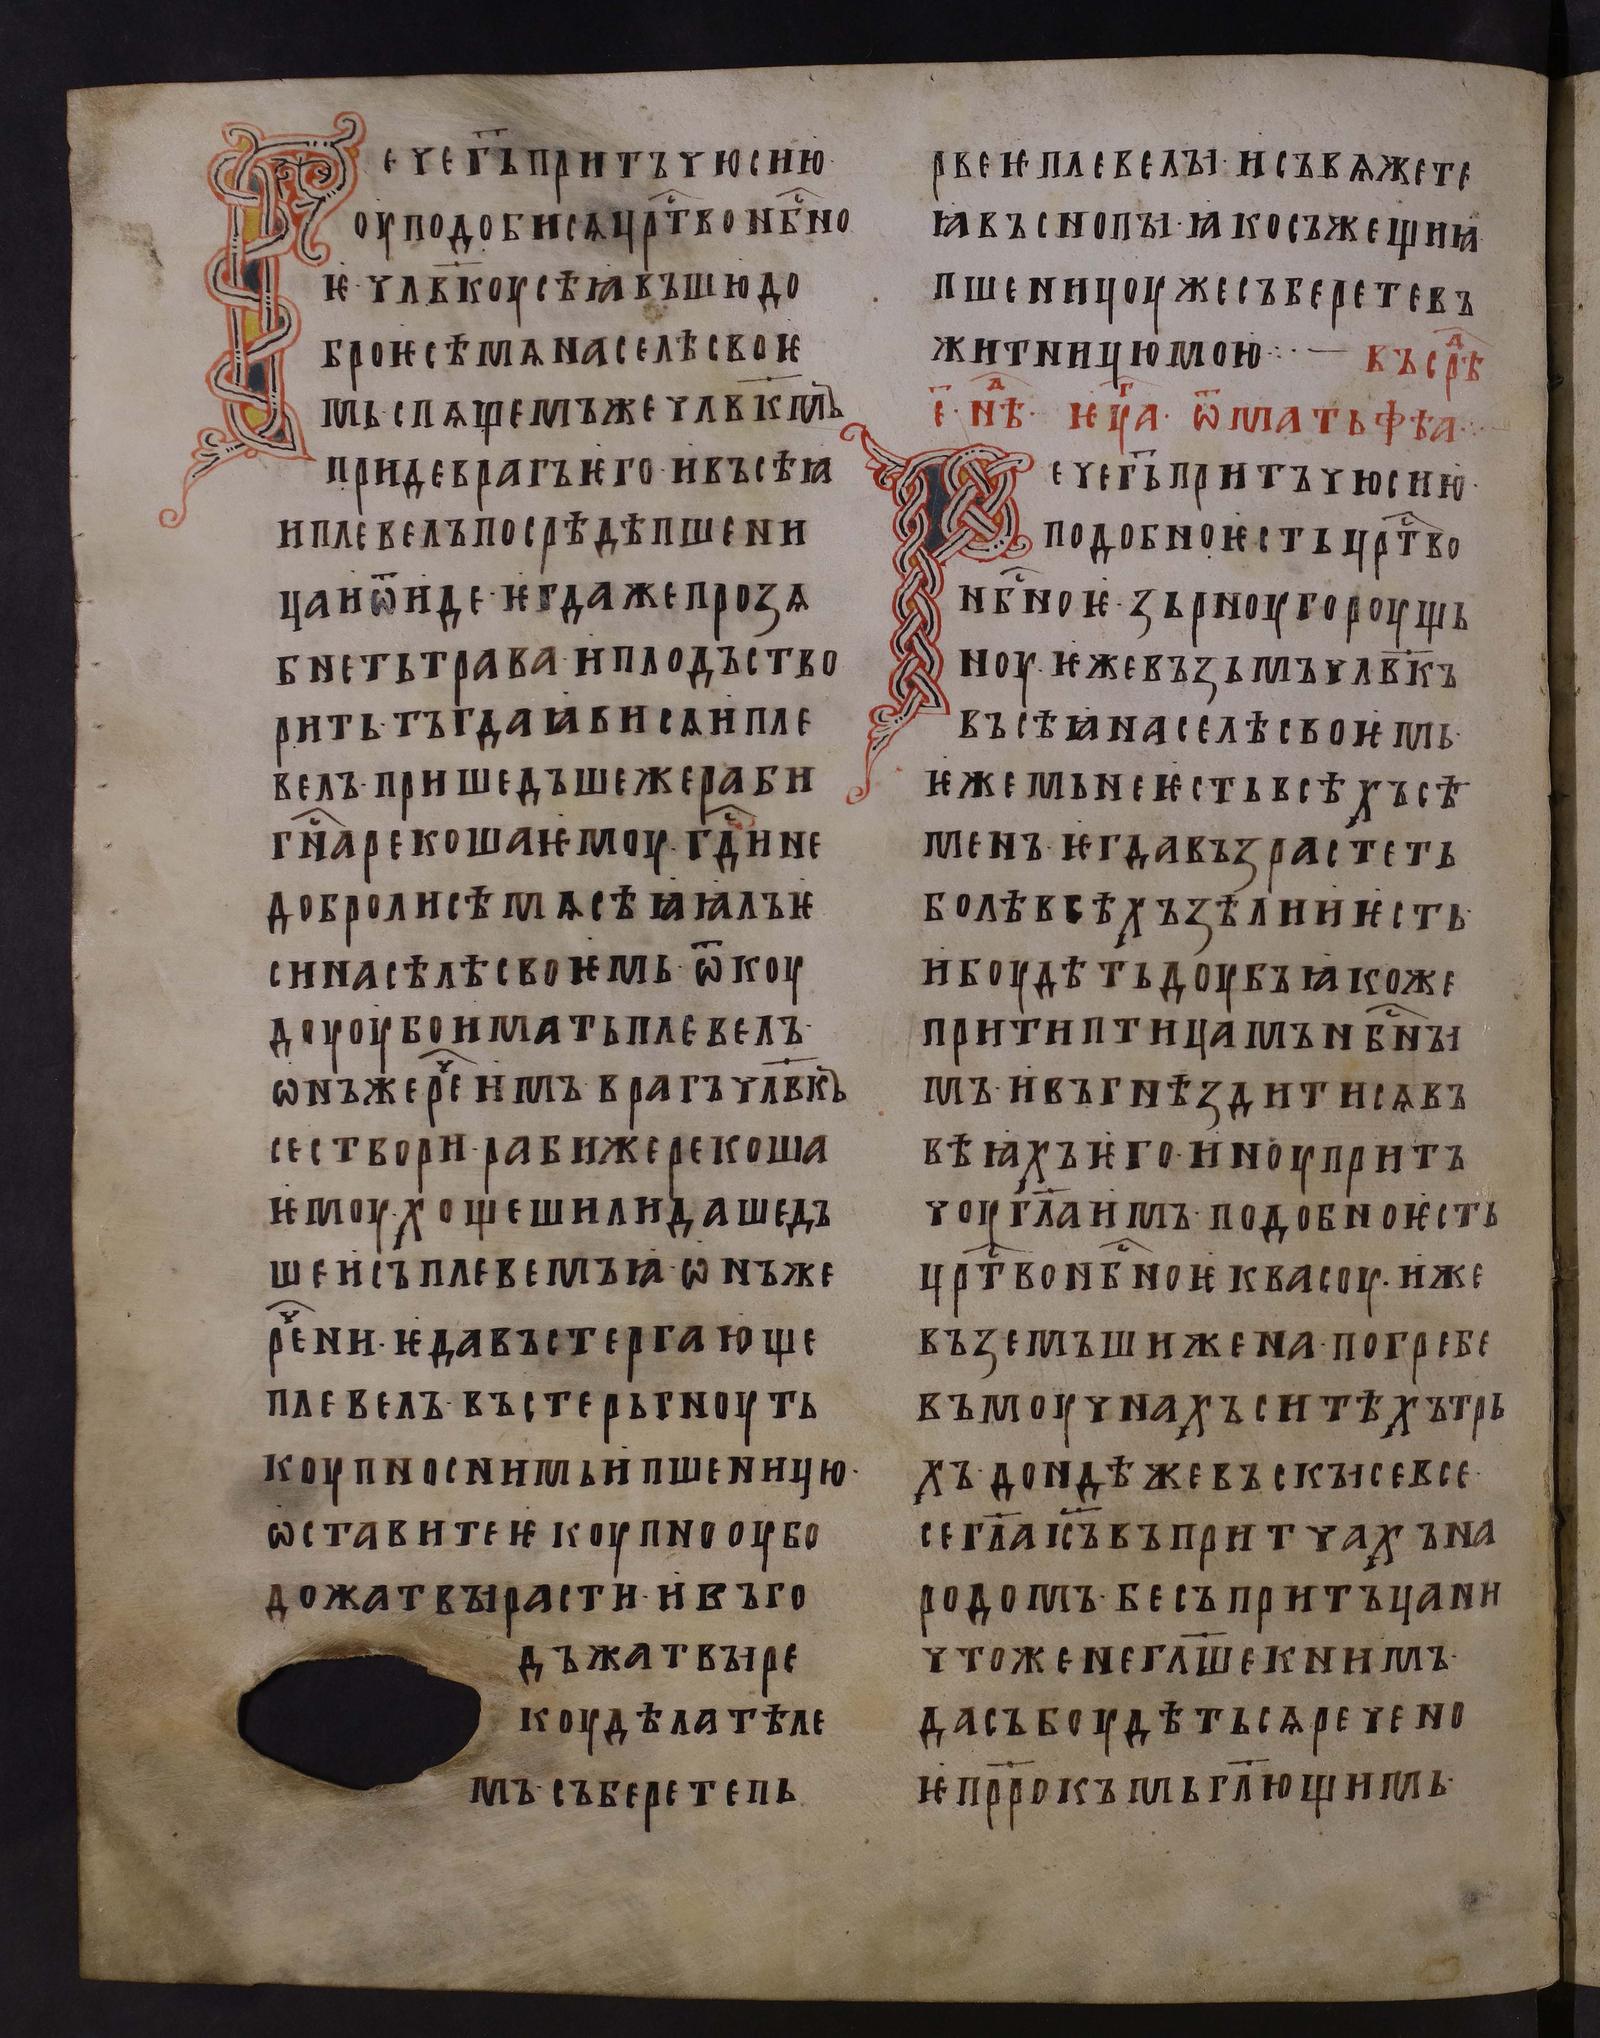 Рече г҃ъ притъчю сию·
оуподобисѧ цр҃тво нб҃но
ѥ· члв҃коу сѣꙗвъшю до
броѥ сѣмѧ на селѣ своѥ
мь· спѧщемъ же члв҃кмъ
приде врагъ ѥго· и въсѣꙗ
и плевелъ посрѣдѣ пшени
ца и ѿиде· ѥгда же прозѧ
бнеть трава· и плодъ ство
рить· тъгда ꙗви сѧ и пле
велъ· пришедъше же раби
г҃на рекоша ѥмоу· г҃дⷭи не
добро ли сѣмѧ сѣꙗꙗлъ ѥ
си на сѣлѣ своѥмь· ѿкоу
доу оубо имать плевелъ·
ѡнъ же реⷱ имъ· врагъ члв҃къ
се створи· раби же рекоша
ѥмоу· хощеши ли да шедъ
ше исъплевемъ ꙗ· ѡнъ же
реⷱ ни· ѥда въстергающе
плевелъ· въстерьгноуть
коупно с нимьи пшеницю·
ѡставите ѥ коупно оубо
до жатвꙑ расти· и въ го
дъ жатвꙑ ре
коу дѣлатѣле
мъ· съберете пь
рвеѥ плевелꙑ· и съвѧжете
ꙗ въ снопꙑ· ꙗко съжещи ꙗ·
пшеницоу же съберете въ
житницю мою ⁘ — въ срⷣѣ
е҃· нⷣѣ· ѥуⷢа· ѿ матьфѣа·
Рече г҃ь притъчю сию·
подобно ѥсть црⷭ҇тво
нбⷭ҇ноѥ· зьрноу гороушь
ноу· ѥже възьмъ члв҃къ
въсѣꙗ на селѣ своѥмь·
ѥже мьне ѥсть всѣхъ сѣ
менъ· ѥгда въздрастеть
болѣ всѣхъ зѣлии ѥсть·
и боудѣть доубъ ꙗкоже
прити птицамъ нбⷭ҇нꙑ
мъ· и въгнѣздити сѧ въ
вѣꙗхъ ѥго· и ноу прить
чоу гл҃а имъ· подобно ѥсть
црⷭ҇тво нбⷭ҇ноѥ квасоу· иже
въземъши жена· погребе
въ моучнахъ ситѣхъ трь
хъ· дондѣже въскꙑсе все·
се гл҃а іс҃ъ въ притчахъ на
родомъ· бес притъца ни
чтоже не гл҃ше к нимъ·
да събоудѣть сѧ речено
ѥ пр҃ркъмь гл҃ющимь·